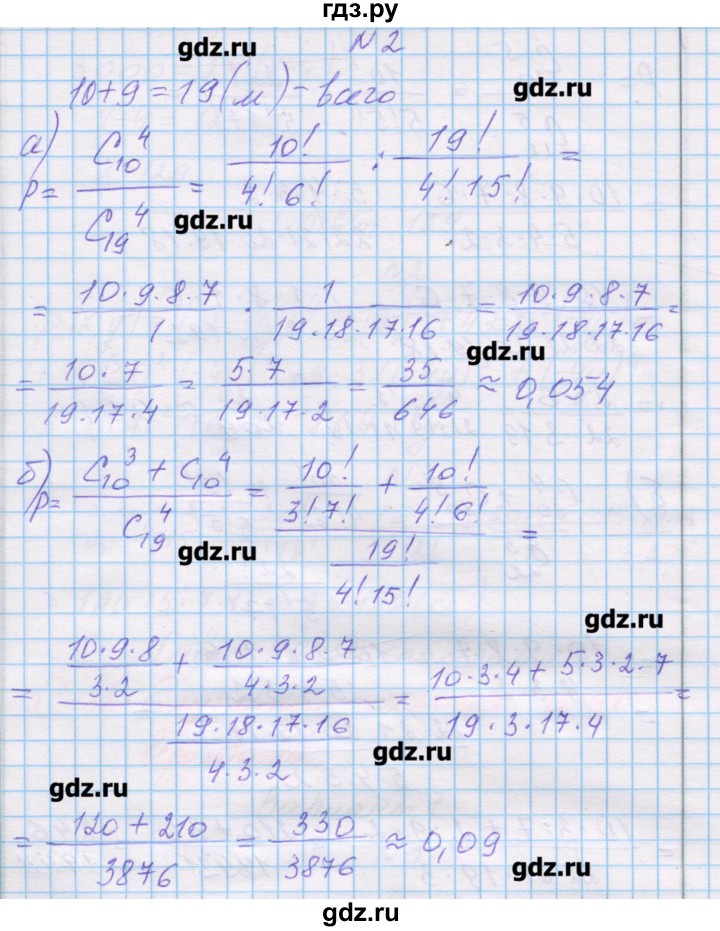 гдз.ру
gdz.ru
N 2
gdz.ru
10+9=19(м)-всего
а) p= C₁₀⁴ / C₁₉⁴ = 10! / 4! 6! : 19! / 4! 15! =
gdz.ru
= 10·9·8·7 / 1 · 1 / 19·18·17·16 = 10·9·8·7 / 19·18·17·16 =
gdz.ru
= 10·7 / 19·17·4 = 5·7 / 19·17·2 = 35 / 646 ≈ 0,054
б) p= C₁₀³ + C₁₀⁴ / C₁₉⁴ = 10! / 3! 7! + 10! / 4! 6! / 19! / 4! 15! =
gdz.ru
gdz.ru
= 10·9·8 / 3·2 + 10·9·8·7 / 4·3·2 / 19·18·17·16 / 4·3·2 = 10·3·4 + 5·3·2·7 / 19·3·17·4 =
gdz.ru
gdz.ru
= 120 + 210 / 3876 = 330 / 3876 ≈ 0,09
gdz.ru
gdz.ru